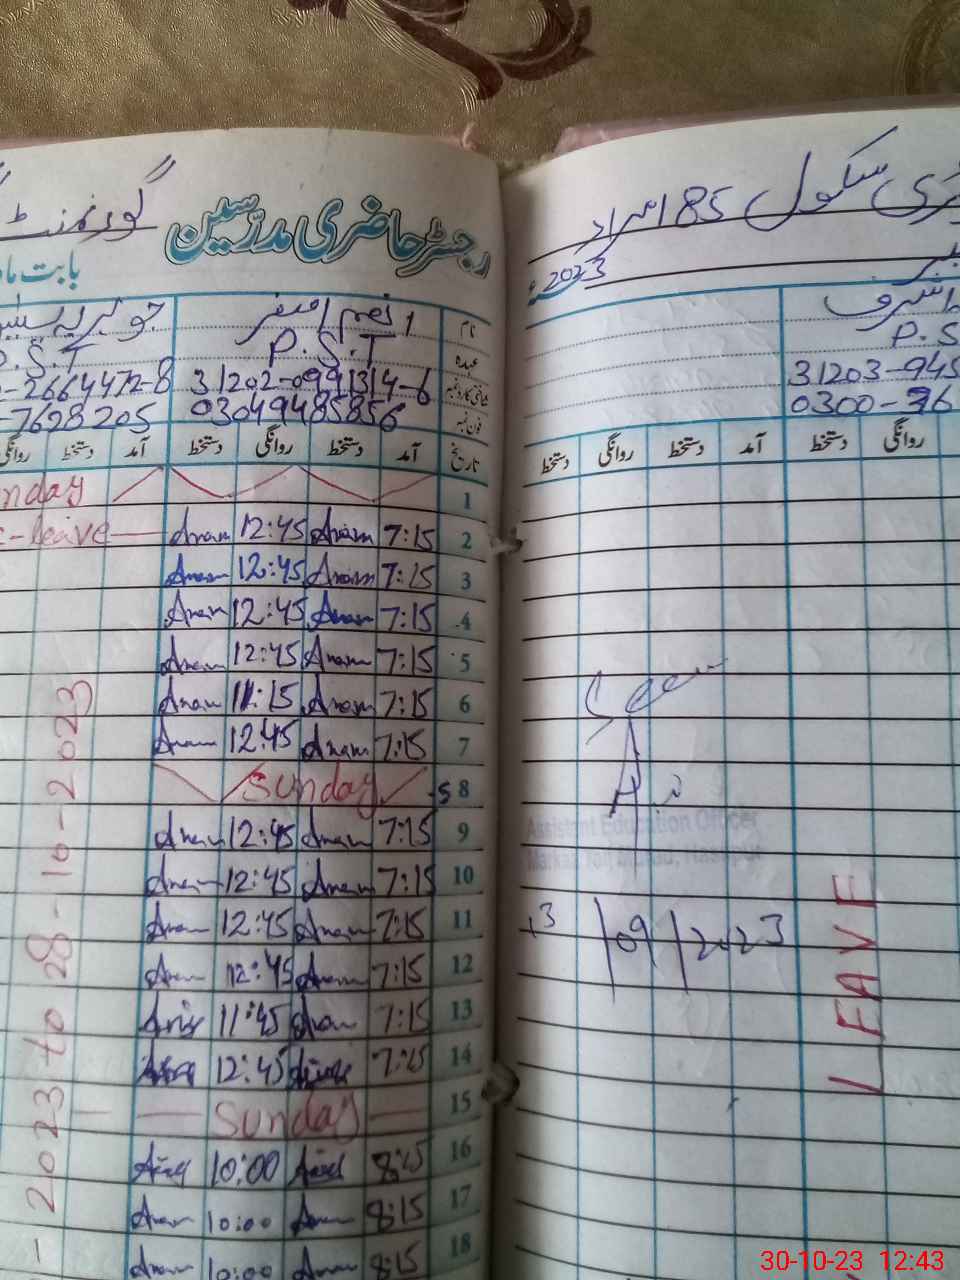 گورنمنٹ
رجسٹر حاضری مدرسین
بابت ماہ
سکول 85 امراد
2023ء
نام
عہدہ
شناختی کارڈ نمبر
فون نمبر
انعم اصغر
P.S.T
31202-0991314-6
03049485856
جویریہ
P.S.T
-2664472-8
-7628205
اشرف
P.S
31203-945
0300-96
تاریخ آمد دستخط روانگی دستخط آمد دستخط روانگی
روانگی دستخط آمد دستخط روانگی دستخط
1 Sunday
2 7:15 Anam 12:45 Anam c-leave
3 7:15 Anam 12:45 Anam
4 7:15 Anam 12:45 Anam
5 7:15 Anam 12:45 Anam
6 7:15 Anam 11:15 Anam
7 7:15 Anam 12:45 Anam
8 Sunday
9 7:15 Anam 12:45 Anam
10 7:15 Anam 12:45 Anam
11 7:15 Anam 12:45 Anam
12 7:15 Anam 12:45 Anam
13 7:15 11:45
14 7:15 12:45
15 Sunday
16 8:15 10:00
17 8:15 Anam 10:00 Anam
18 8:15 Anam 10:00 Anam
2023 to 28-10-2023
Assistant Education Officer
13/09/2023
LEAVE
30-10-23 12:43